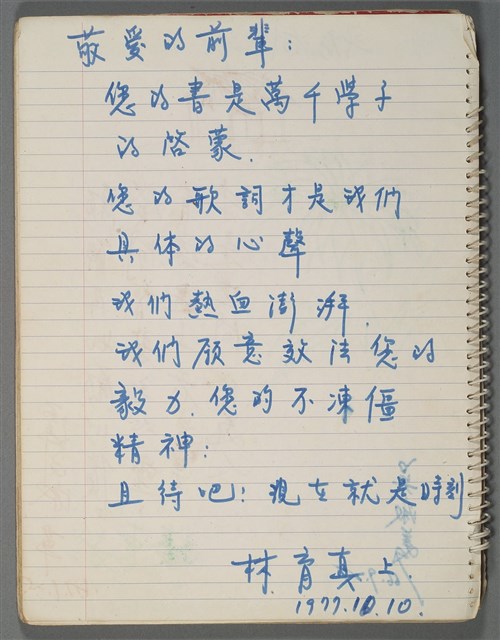 敬愛的前輩：
您的書是萬千學子
的啓蒙.
您的歌詞才是我們
具体的心聲
我們熱血澎湃.
我們願意效法您的
毅力.您的不凍僵
精神：
且待吧！現在就是時刻
林育真上.
1977.10.10.